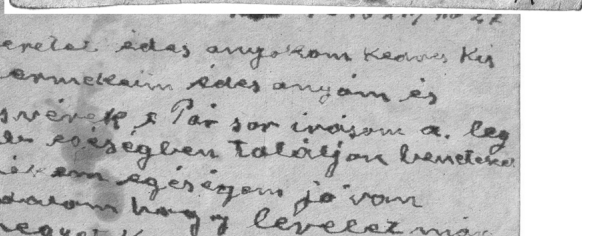 eretet édes anyokom kedves kis
ermekeim édes anyám és
svérek s Pár sor irásom a. leg
egéségben találjon benetek
em egéségem jó van
datom hogy levelet már